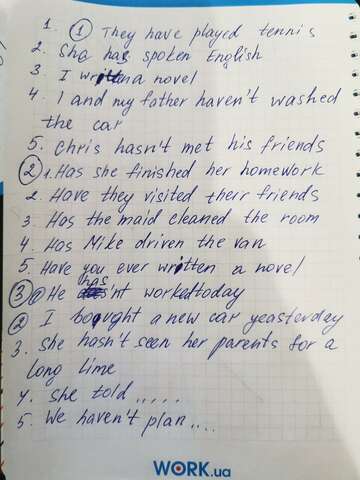 1. ① They have played tennis
2. She has spoken English
3. I written a novel
4. I and my father haven't washed
the car
5. Chris hasn't met his friends
② 1. Has she finished her homework
2. Have they visited their friends
3 Has the maid cleaned the room
4. Has Mike driven the van
5. Have you ever written a novel
③ ① He has n't worked today
② I bought a new car yeasterday
3. She hasn't seen her parents for a
long time
4. She told .....
5. We haven't plan....
WORK.ua